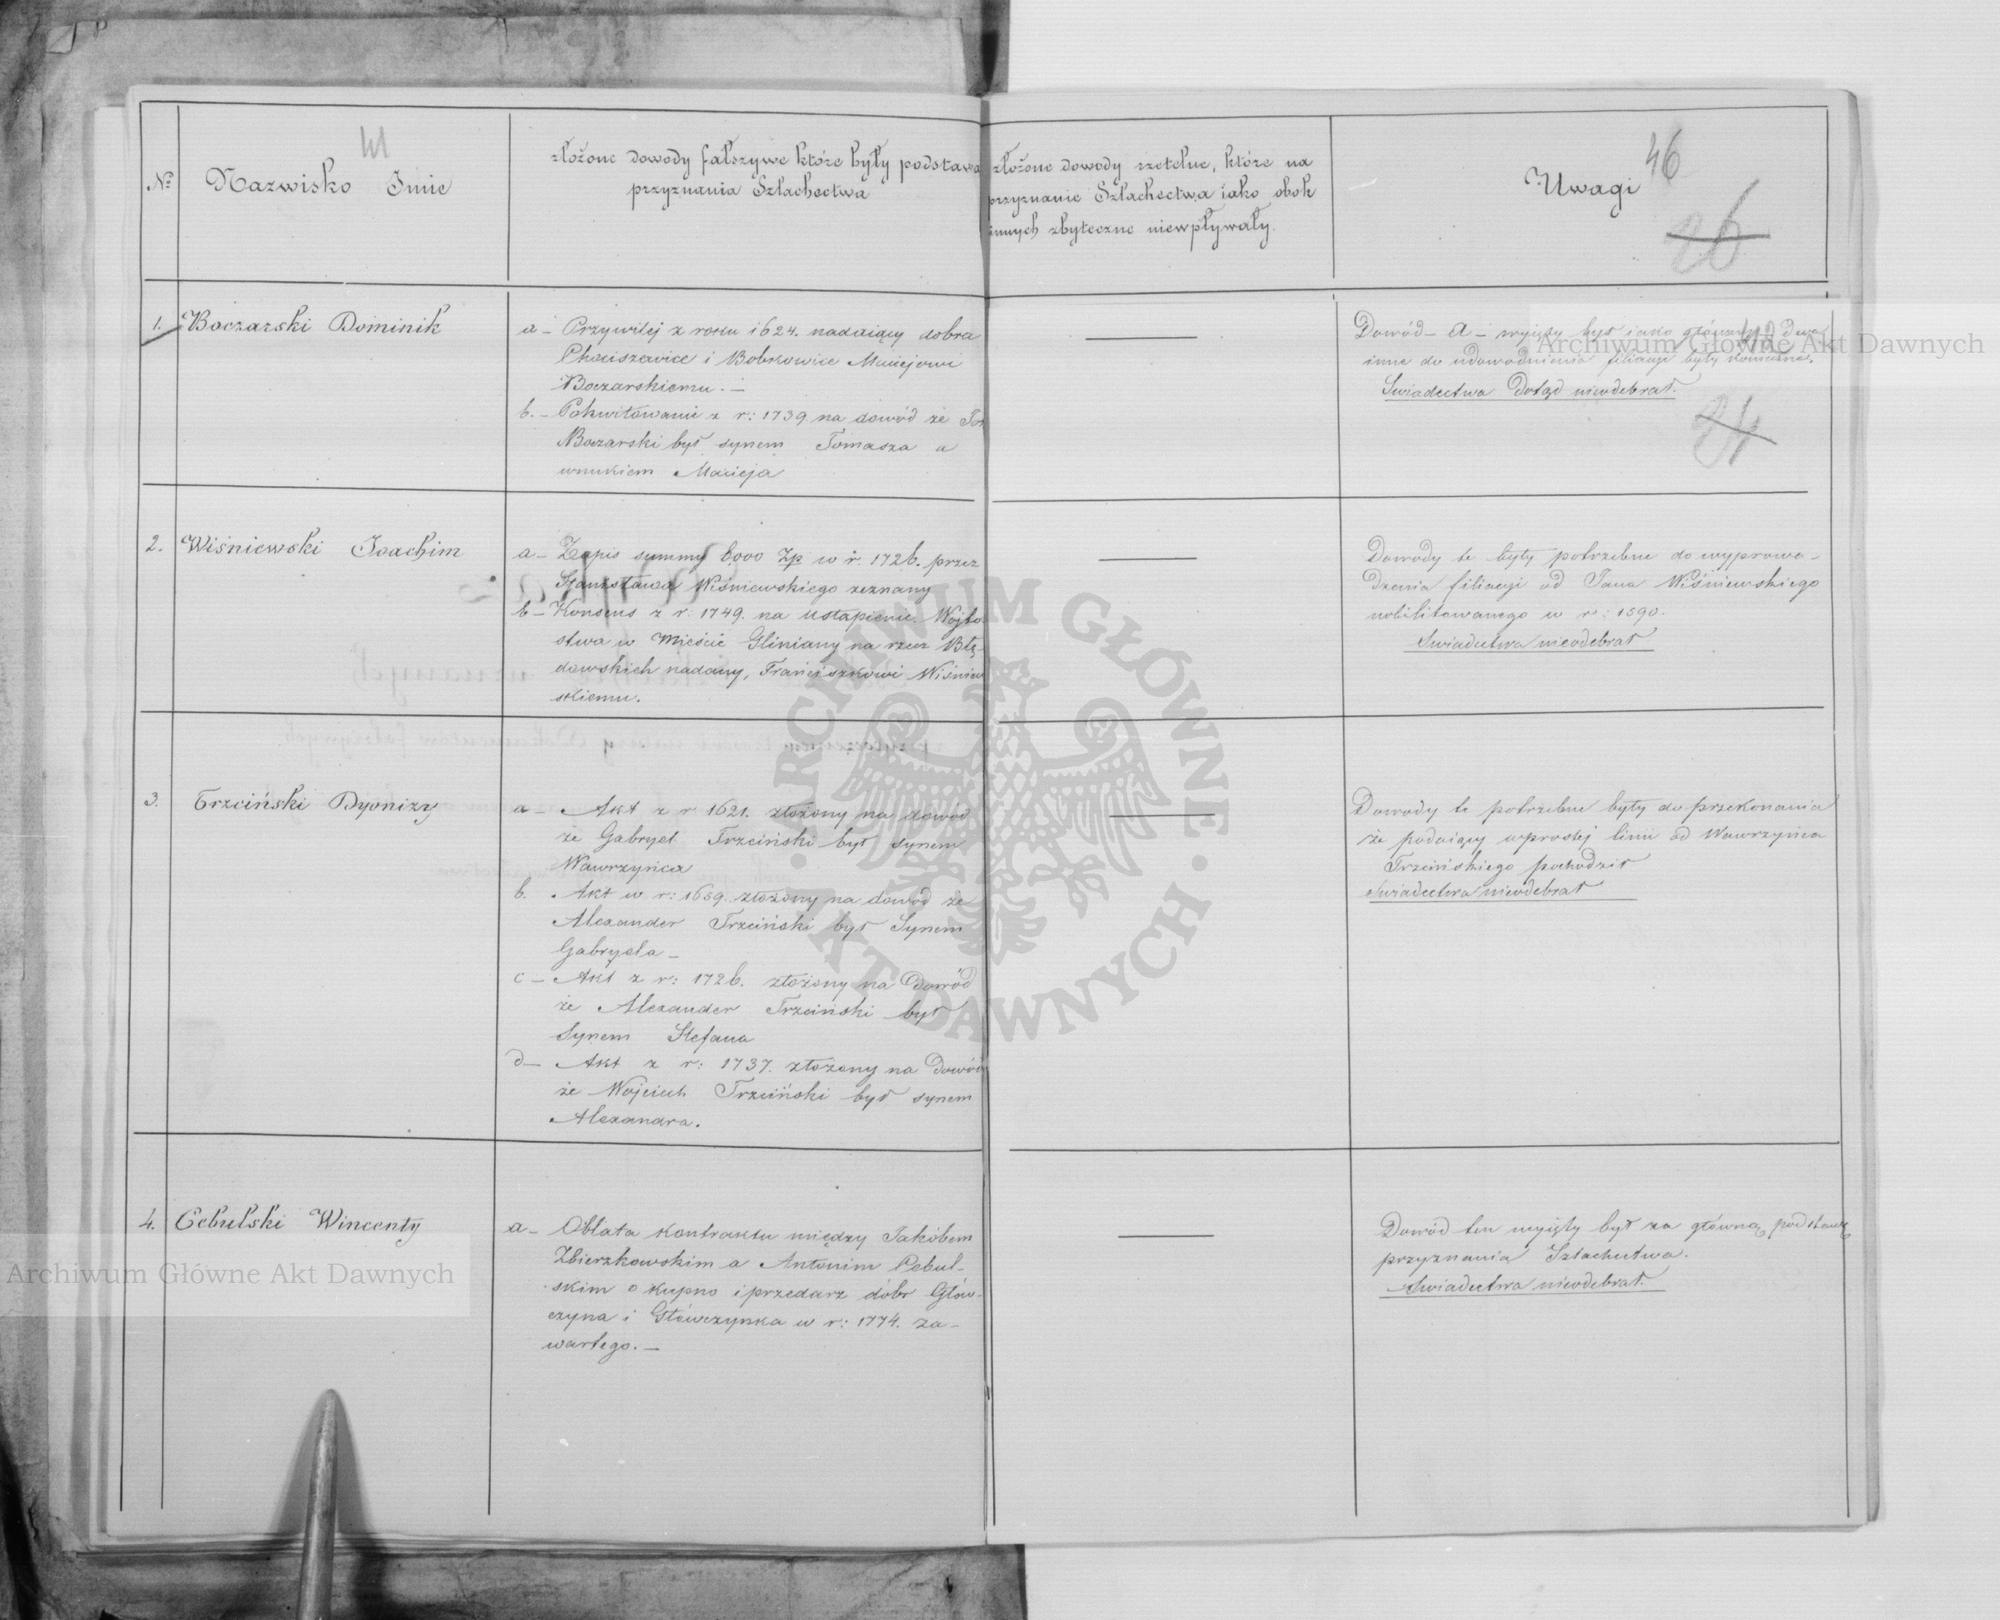 №
Nazwisko Imie
złożone dowody fałszywe które były podstawą
przyznania Szlachectwa
złożone dowody rzetelne, które na
przyznanie Szlachectwa jako obok
innych zbyteczne niewpływały.
Uwagi
46
26
1.
Boczarski Dominik
a – Przywilej z roku 1624. nadaiący dobra
i Bobrowice Maciejowi
Boczarskiemu. –
b. – Pokwitowanie z r: 1739. na dowód że
Boczarski był synem Tomasza a
wnukiem Macieja
Dowód – A – wzięty był iako główny dwa
inne do udowodnienia filiacyi były
Swiadectwa Dotąd nieodebrał.
24
2.
Wiśniewski Joachim
a – Zapis summy 6,000 Zp w r. 1726. przez
Stanisława Wiśniewskiego zeznany
b – Konsens z r: 1749. na Ustąpienie Wojto
stwa w Mieście Gliniany na rzecz Błę
dowskich nadany, Franciszkowi Wiśniew
skiemu.
Dowody te były potrzebne do wyprowa –
dzenia filiacyi od Jana Wiśniewskiego
nobilitowanego w r: 1590.
Swiadectwa nieodebrał
3.
Trzciński Dyonizy
a – Akt z r 1621. złożony na dowód
że Gabryel Trzciński był synem
Wawrzyńca
b. Akt w r: 1659. złożony na dowód że
Alexander Trzciński był Synem
Gabryela –
c – Akt z r: 1726. złożony na Dowód
że Alexander Trzciński był
Synem Stefana
d – Akt z r: 1737. złożony na Dowód
że Wojciech Trzciński był synem
Alexandra.
Dowody te potrzebne były do przekonania
że podaiący wprostej linii od Wawrzyńca
Trzcińskiego pochodził
Swiadectwa nieodebrał
4.
Cebulski Wincenty
a – Oblata kontraktu między Jakóbem
Zbierzkowskim a Antonim Cebul –
skim o kupno i przedarz dóbr Głów –
czyna i Główczynka w r: 1774. za –
wartego. –
Dowód ten wzięty był za główną podstawę
przyznania Szlachectwa.
Swiadectwa nieodebrał.
Archiwum Główne Akt Dawnych
Archiwum Główne Akt Dawnych
ARCHIWUM GŁÓWNE AKT DAWNYCH